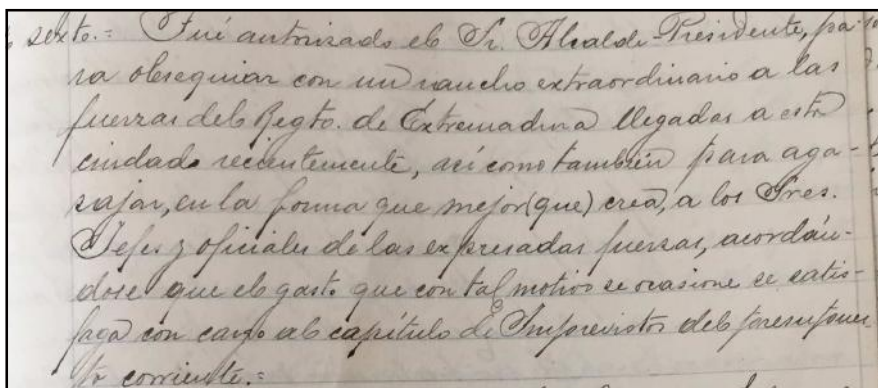 sexto.= Fué autorizado el Sr. Alcalde-Presidente, pa
ra obsequiar con un rancho extraordinario a las
fuerzas del Regto. de Extremadura llegadas a esta
ciudad recientemente, así como también para aga-
sajar, en la forma que mejor (que) crea, a los Sres.
Jefes y oficiales de las expresadas fuerzas, acordán-
dose que el gasto que con tal motivo se ocasione se satis-
faga con cargo al capítulo de Imprevistos del presupues
to corriente.=